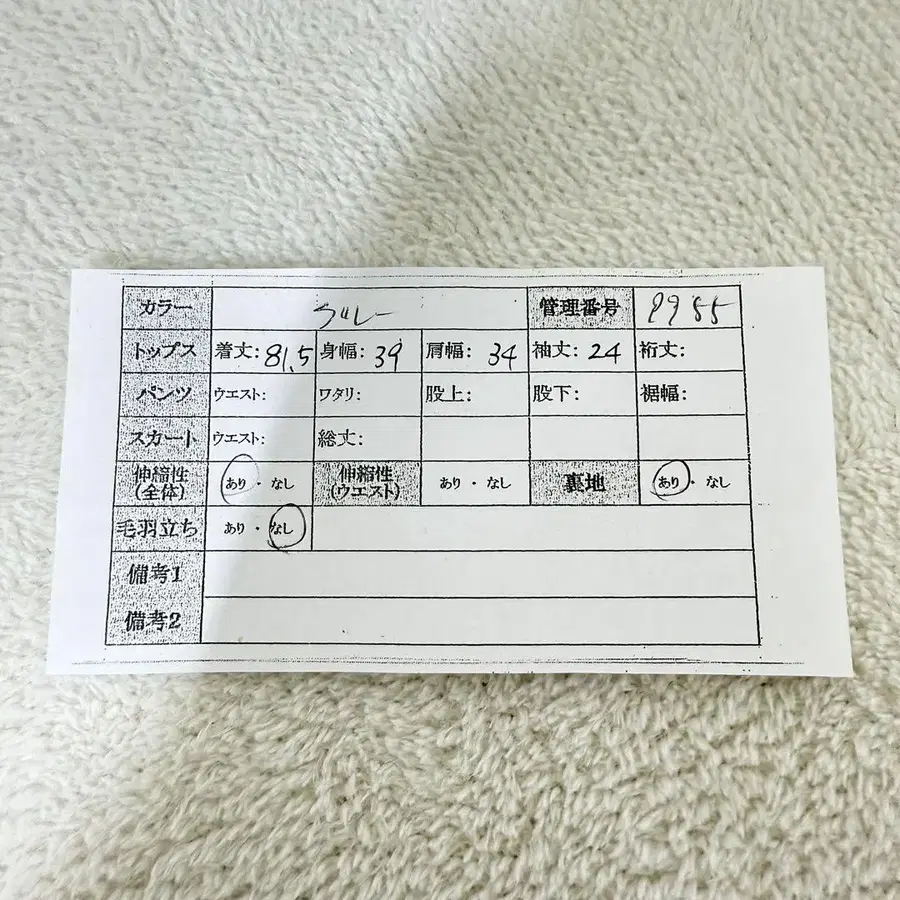 カラー 管理番号 9955
トップス 着丈: 81.5 身幅: 39 肩幅: 34 袖丈: 24 裄丈:
パンツ ウエスト: ワタリ: 股上: 股下: 裾幅:
スカート ウエスト: 総丈:
伸縮性(全体) あり・なし 伸縮性(ウエスト) あり・なし 裏地 あり・なし
毛羽立ち あり・なし
備考1
備考2